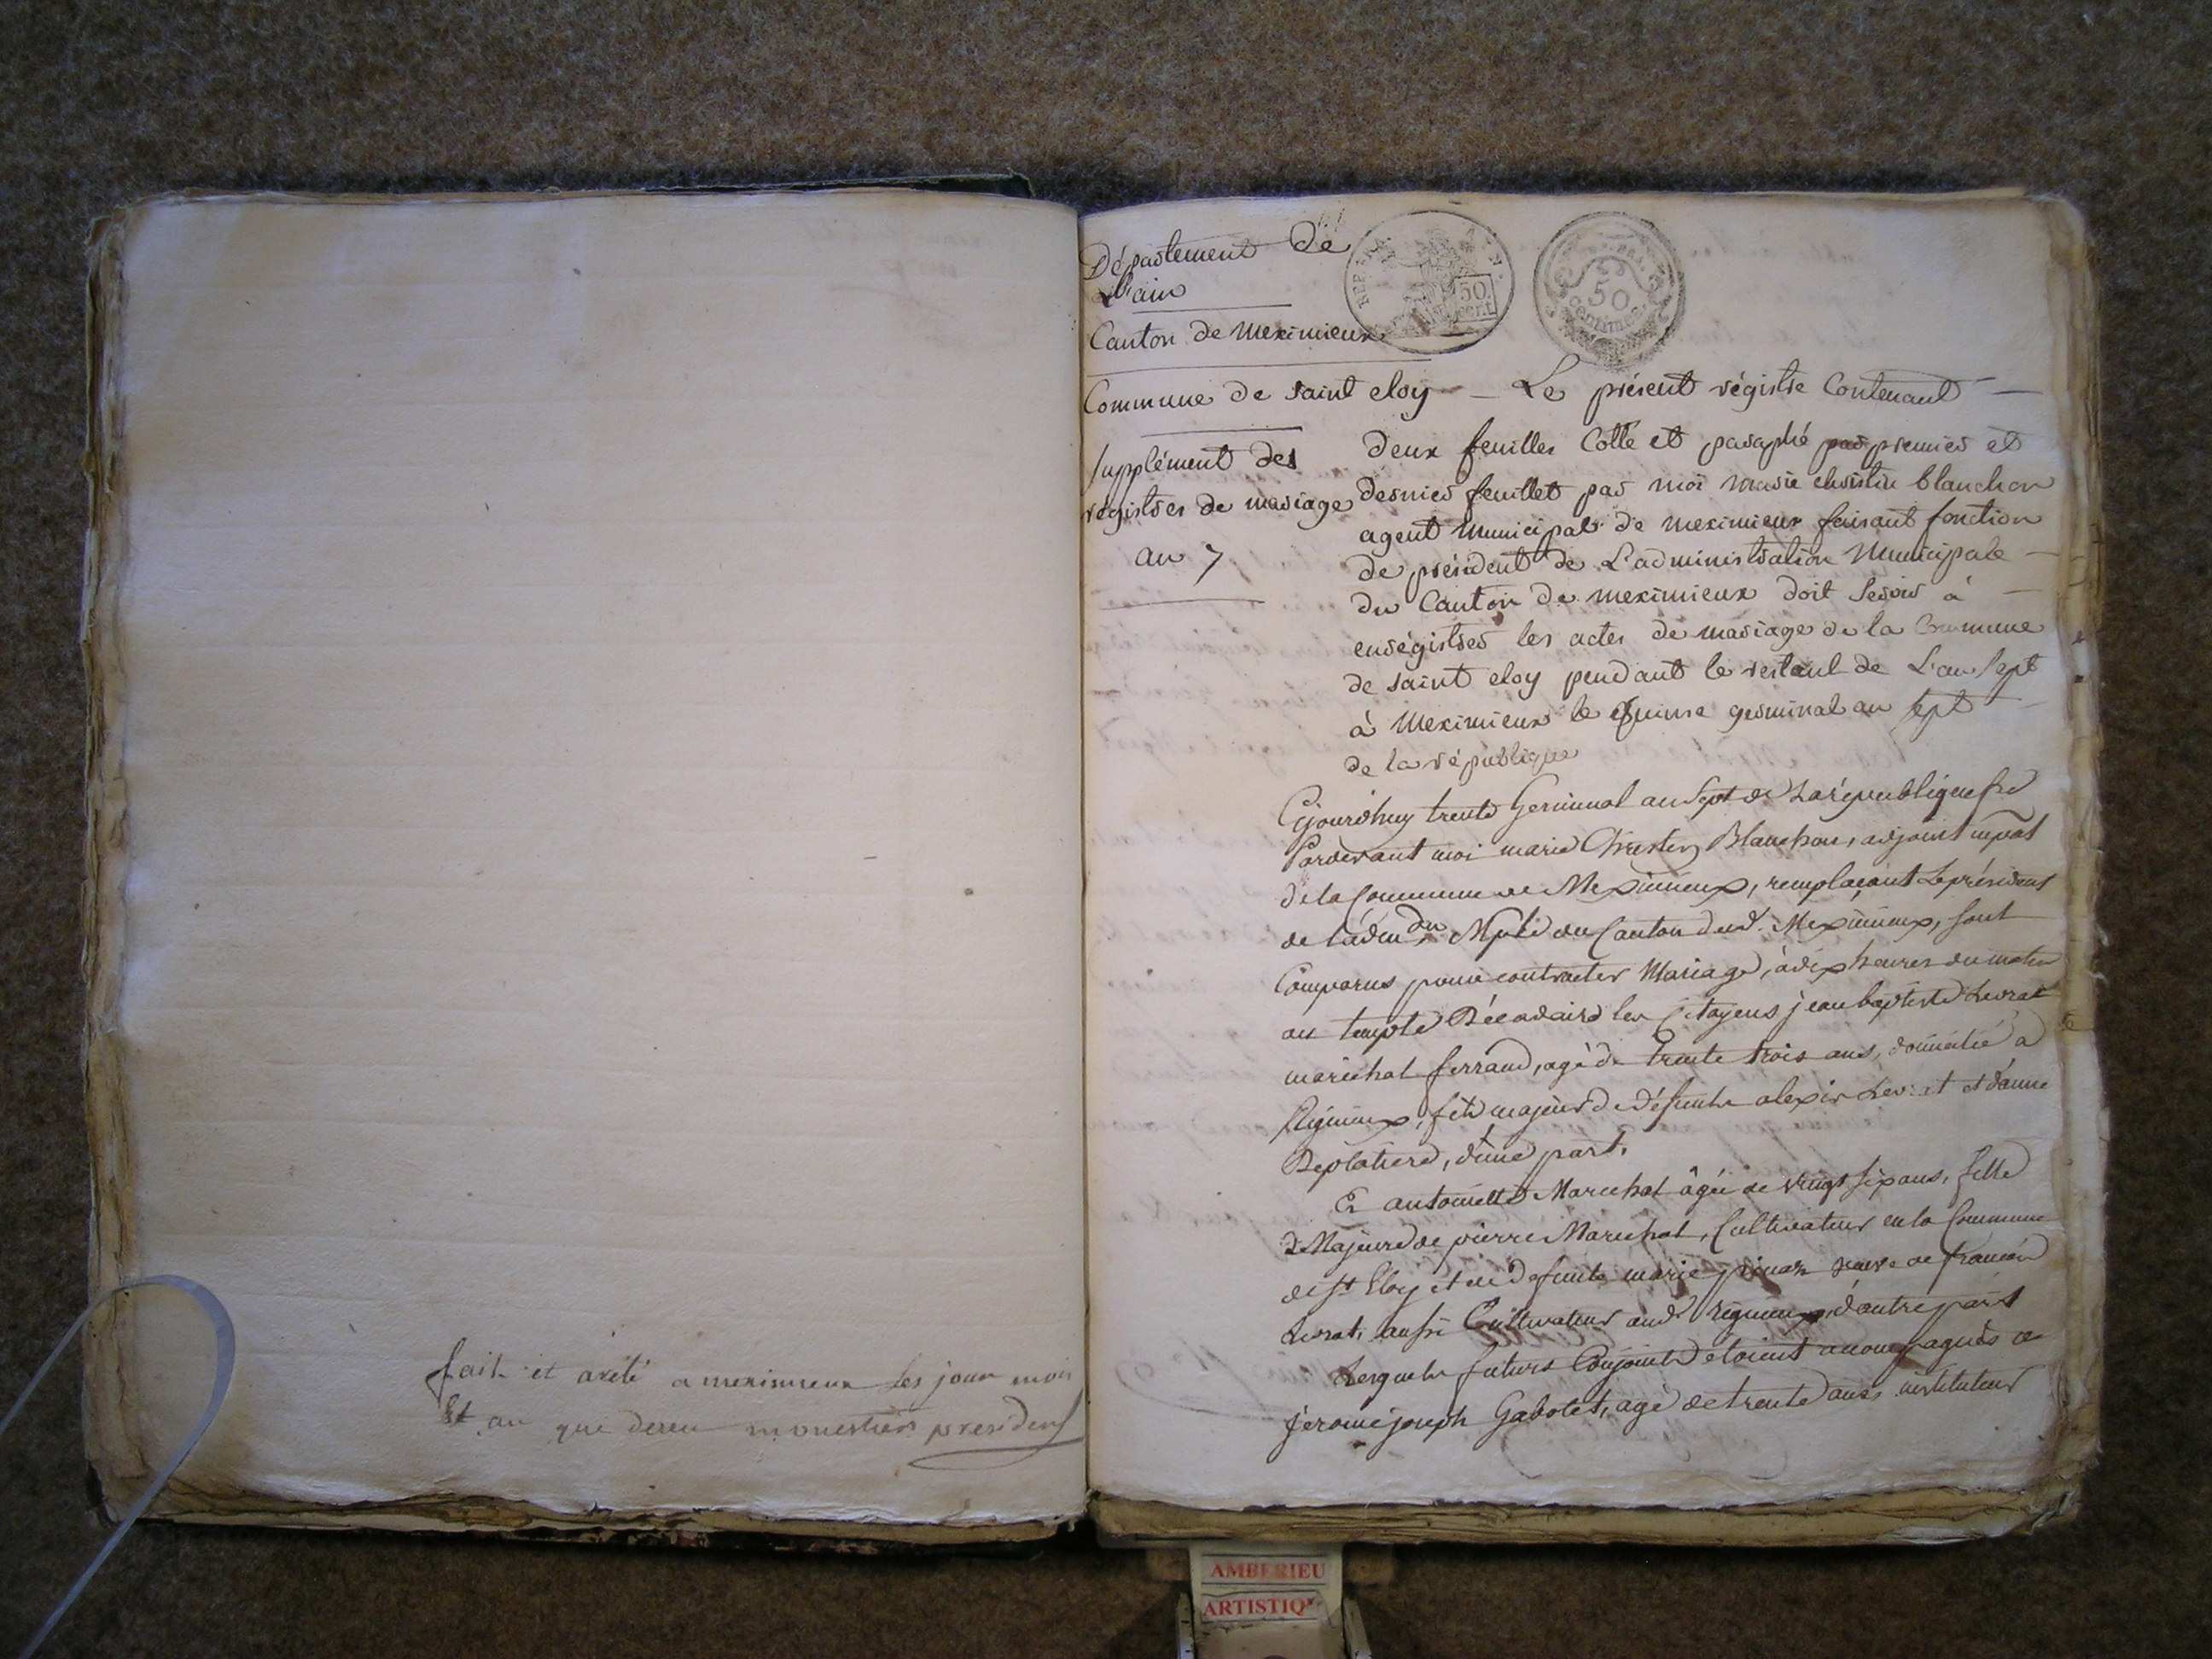 fait et areté a meximieux les jour mois
Et an que deseu monestier president
Département de
L'ain
Canton de Meximieux
Commune de saint eloy
supplément des
régistres de mariage
an 7
50
cent
50
centimes
Le présent régistre Contenant
deux feuilles Cotté et paraphé par premier et
dernier feuillet par moi marie christin blanchon
agent Municipal de meximieux faisant fonction
de président de L'administration Municipale
du Canton de meximieux doit servir à
enrégistrer les actes de mariage de la Commune
de saint eloy pendant le restant de L'an sept
à Meximieux le quinse germinal an sept
de la république
Cejourdhuy trente Germinal an sept de La république fse
Pardevant moi marie Christin Blanchon, adjoint mpal
de la Commune de Meximieux, remplaçant Le président
de l'adm on Mple du Canton dud. Meximieux, sont
Comparus pour contracter Mariage, à dix heures du matin
au temple Décadaire les Citoyens jean baptiste Levrat
maréchal ferrand, agé de trente trois ans, domicilié a
Rigneux, fils majeur de défunts alexis Levrat et d'anne
Deplatiere, d'une part.
Et antoinette Marechal âgée de vingt six ans, fille
Majeure de pierre Marechal, Cultivateur en la Commune
de St Eloy et de defunte marie veuve de francois
Levrat, aussi Cultivateur aud. rigneux, d'autre part
Lesquels futurs Conjoints etoient accompagnés de
jérome joseph Gabotet, agé de trente ans, instituteur
AMBERIEU
ARTISTIQ